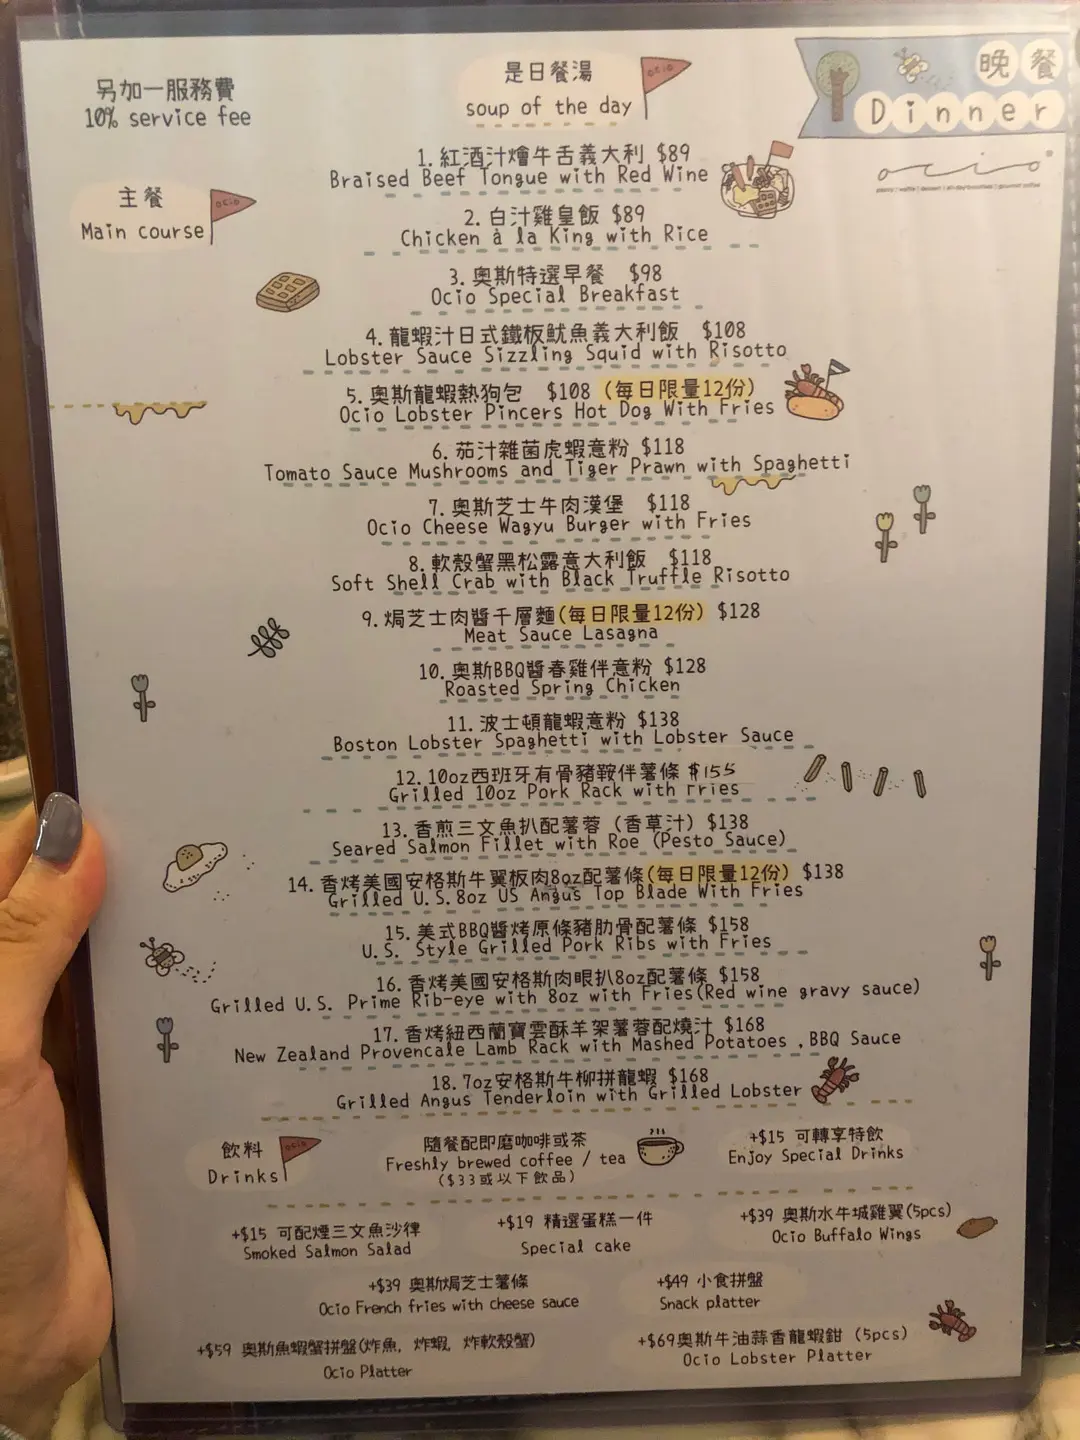 另加一服務費
10% service fee
是日餐湯
soup of the day
ocio
晚餐
Dinner
ocio
主餐
Main course
ocio
1. 紅酒汁燴牛舌義大利 $89
Braised Beef Tongue with Red Wine
2. 白汁雞皇飯 $89
Chicken à la King with Rice
3. 奧斯特選早餐 $98
Ocio Special Breakfast
4. 龍蝦汁日式鐵板魷魚義大利飯 $108
Lobster Sauce Sizzling Squid with Risotto
5. 奧斯龍蝦熱狗包 $108 (每日限量12份)
Ocio Lobster Pincers Hot Dog With Fries
6. 茄汁雜菌虎蝦意粉 $118
Tomato Sauce Mushrooms and Tiger Prawn with Spaghetti
7. 奧斯芝士牛肉漢堡 $118
Ocio Cheese Wagyu Burger with Fries
8. 軟殼蟹黑松露意大利飯 $118
Soft Shell Crab with Black Truffle Risotto
9. 焗芝士肉醬千層麵(每日限量12份) $128
Meat Sauce Lasagna
10. 奧斯BBQ醬春雞伴意粉 $128
Roasted Spring Chicken
11. 波士頓龍蝦意粉 $138
Boston Lobster Spaghetti with Lobster Sauce
12. 10oz西班牙有骨豬鞍伴薯條 $155
Grilled 10oz Pork Rack with Fries
13. 香煎三文魚扒配薯蓉 (香草汁) $138
Seared Salmon Fillet with Roe (Pesto Sauce)
14. 香烤美國安格斯牛翼板肉8oz配薯條(每日限量12份) $138
Grilled U.S. 8oz US Angus Top Blade With Fries
15. 美式BBQ醬烤原條豬肋骨配薯條 $158
U.S. Style Grilled Pork Ribs with Fries
16. 香烤美國安格斯肉眼扒8oz配薯條 $158
Grilled U.S. Prime Rib-eye with 8oz with Fries(Red wine gravy sauce)
17. 香烤紐西蘭寶雲酥羊架薯蓉配燒汁 $168
New Zealand Provencale Lamb Rack with Mashed Potatoes ,BBQ Sauce
18. 7oz安格斯牛柳拼龍蝦 $168
Grilled Angus Tenderloin with Grilled Lobster
飲料
Drinks
ocio
隨餐配即磨咖啡或茶
Freshly brewed coffee / tea
($33或以下飲品)
+$15 可轉享特飲
Enjoy Special Drinks
+$15 可配煙三文魚沙律
Smoked Salmon Salad
+$19 精選蛋糕一件
Special cake
+$39 奧斯水牛城雞翼(5pcs)
Ocio Buffalo Wings
+$39 奧斯焗芝士薯條
Ocio French fries with cheese sauce
+$49 小食拼盤
Snack platter
+$59 奧斯魚蝦蟹拼盤(炸魚, 炸蝦, 炸軟殼蟹)
Ocio Platter
+$69奧斯牛油蒜香龍蝦鉗 (5pcs)
Ocio Lobster Platter